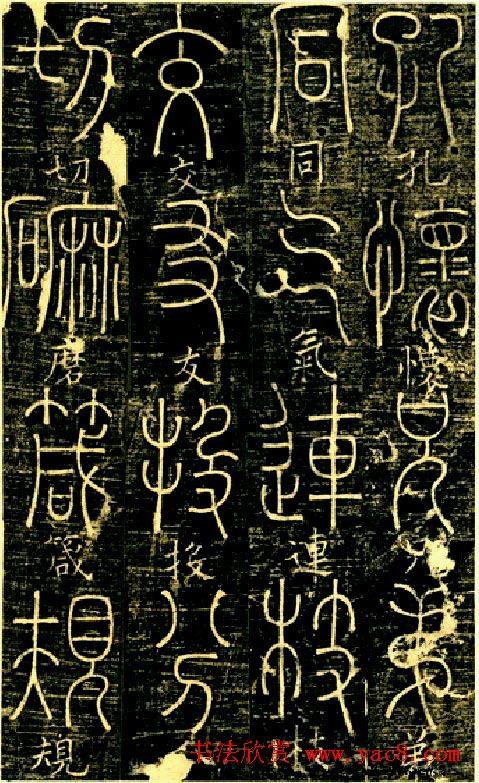 孔懷兄弟
同氣連枝
交友投分
切磨箴規
书法欣赏 www.yac8.com